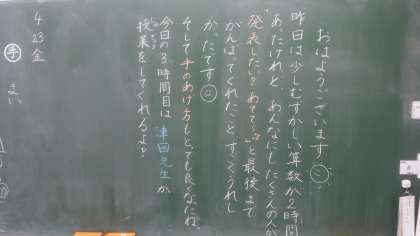 おはようございます
昨日は少しむずかしい算数が2時間
あったけれど、あんなにも たくさんの人が
"発表したい！あてて〜!!"と最後まで
がんばってくれたこと、すごくうれし
かったです
そして手のあげ方もとても良くなったね。
今日の3時間目は 津田先生が
授業をしてくれるよ♪
4
23
金
手
まい